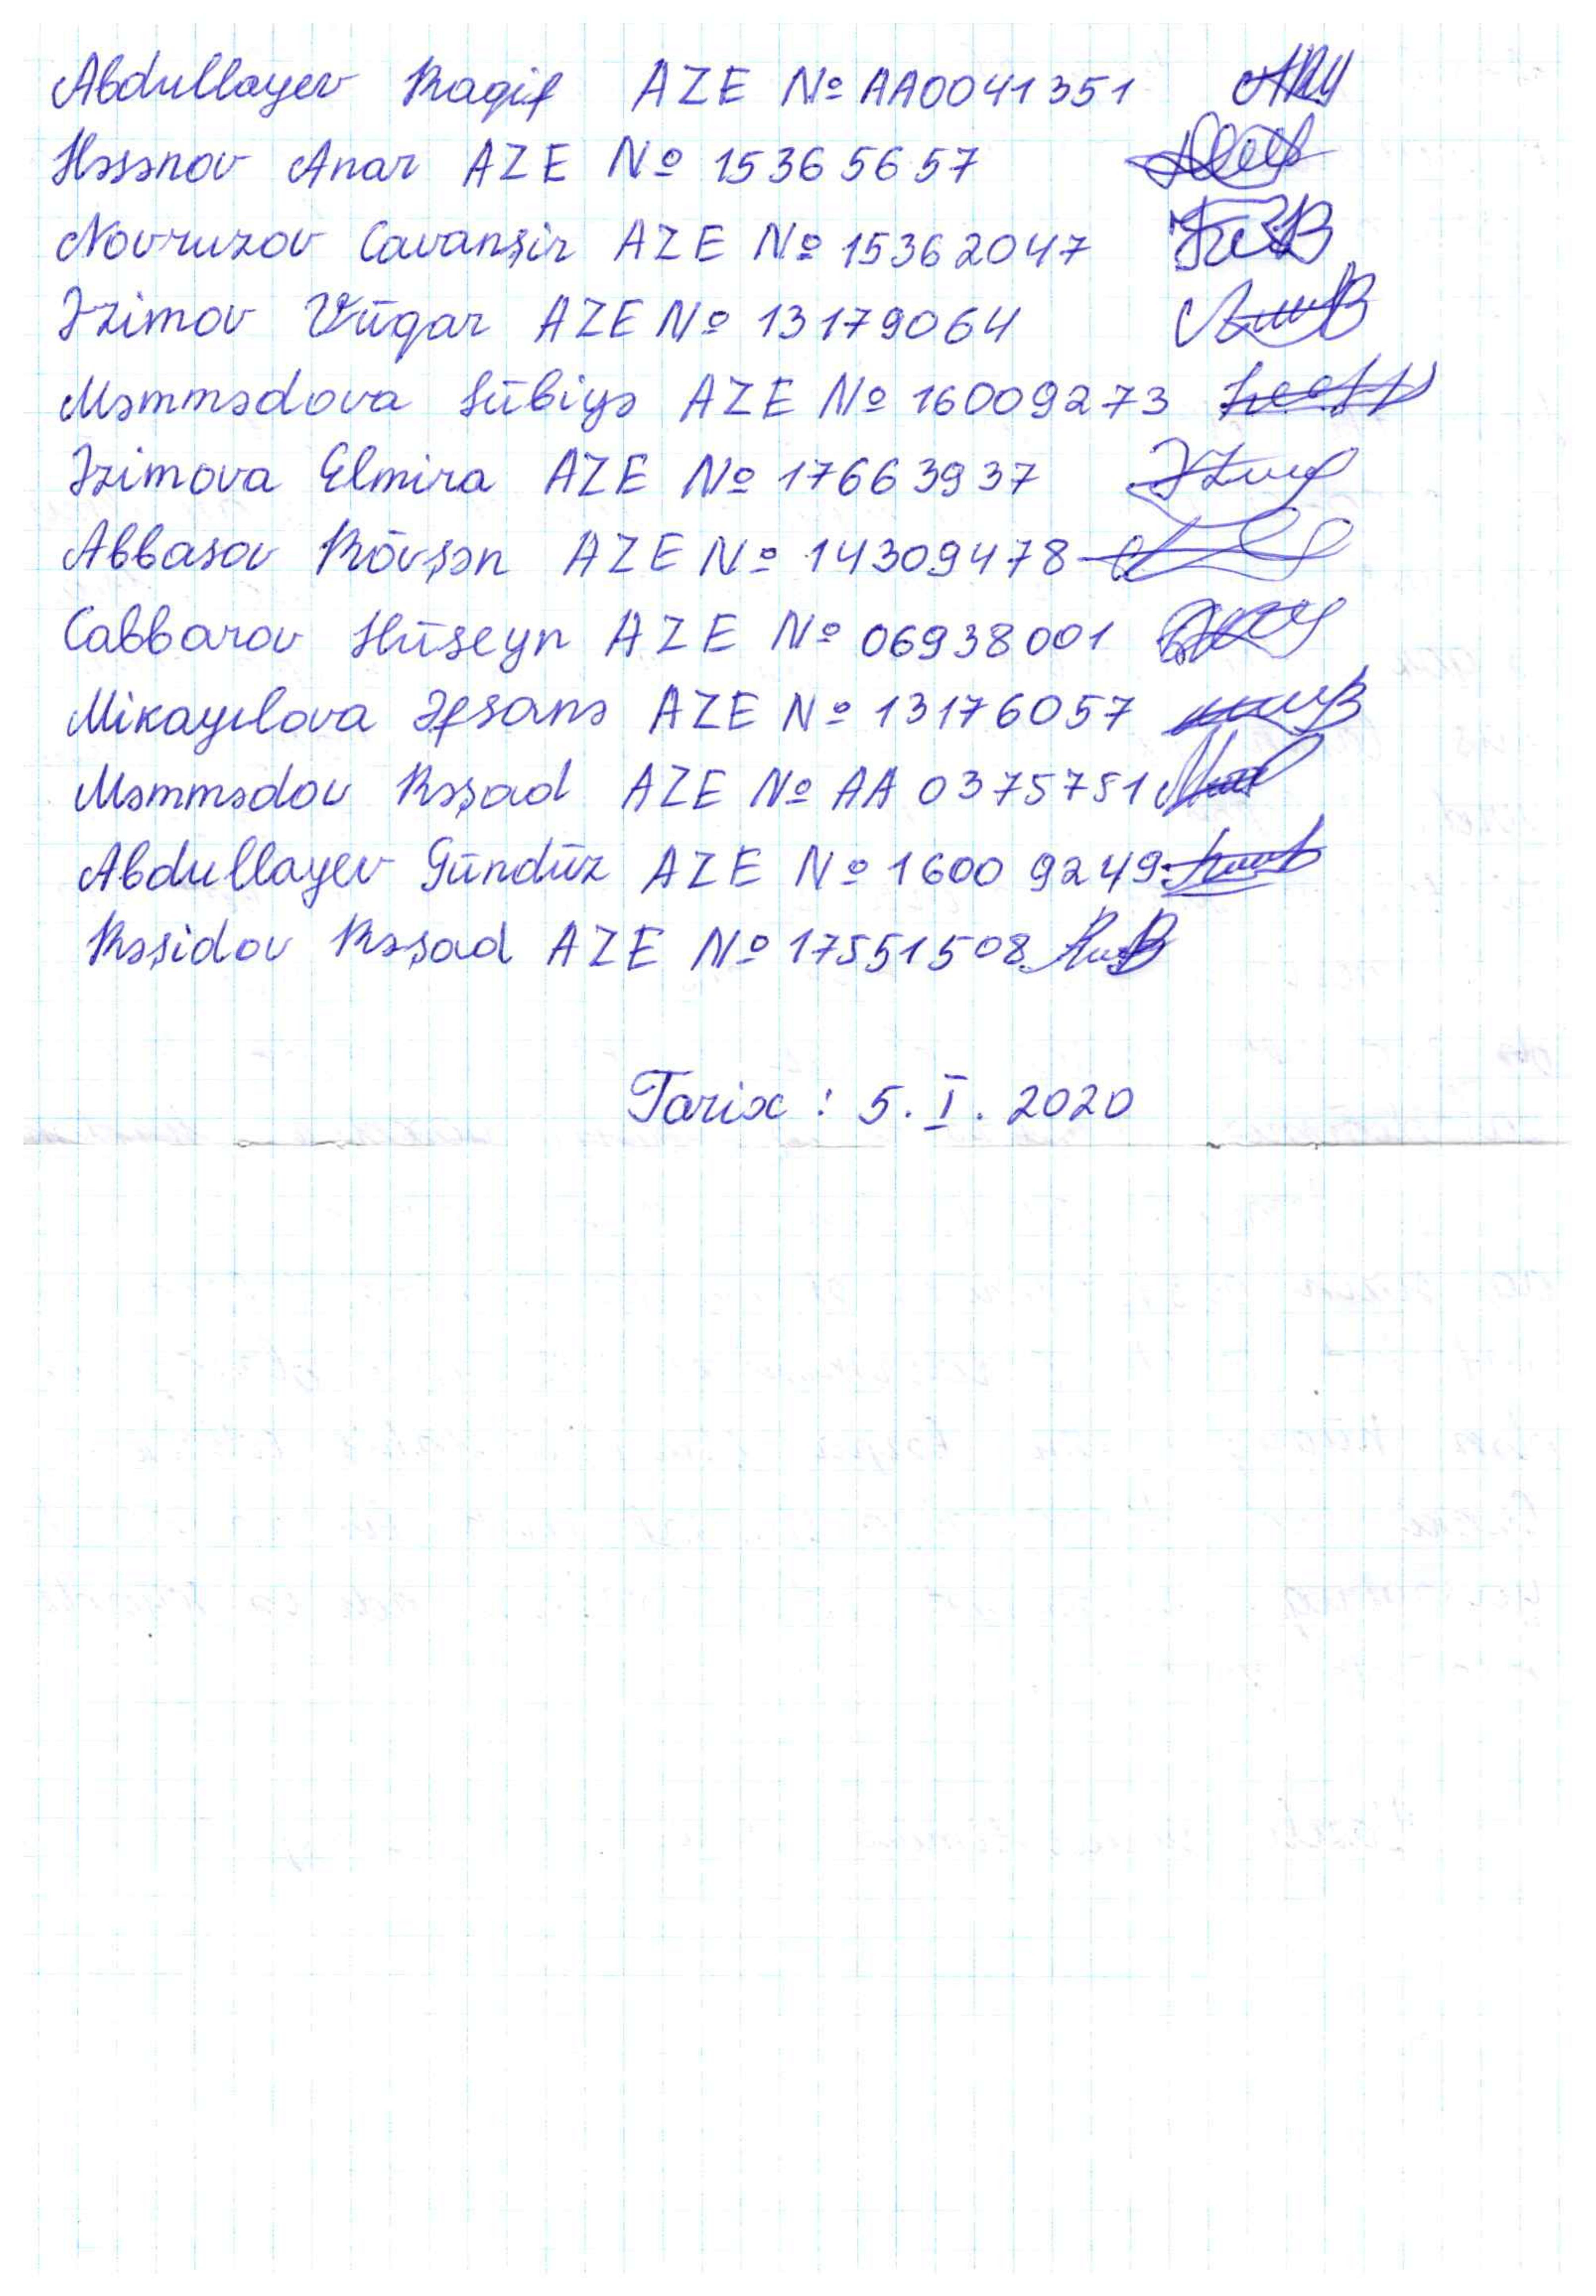 Abdullayev Raqif AZE № AA0041351
Həsənov Anar AZE № 15365657
Novruzov Cavanşir AZE № 15362047
Əzimov Vüqar AZE № 13179064
Məmmədova Sübiyə AZE № 16009273
Əzimova Elmira AZE № 17663937
Abbasov Rövşən AZE № 14309478
Cabbarov Hüseyn AZE № 06938001
Mikayılova Əfsanə AZE № 13176057
Məmmədov Rəşad AZE № AA 0375751
Abdullayev Gündüz AZE № 1600 9249
Rəşidov Rəşad AZE № 17551508
Tarix : 5. I. 2020